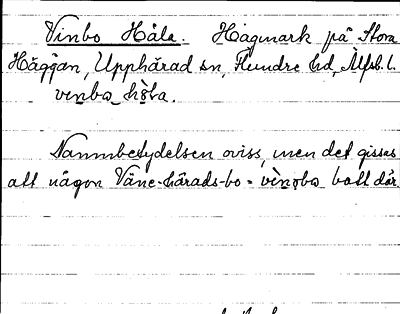 Vinbo Håla. Hagmark på Stora
Häggan, Upphärad sn, Flundre hd, Älfsb. l.
vinba hòla.
Namnbetydelsen oviss, men det gissas
att någon Väne-härads-bo = vènəba bott där